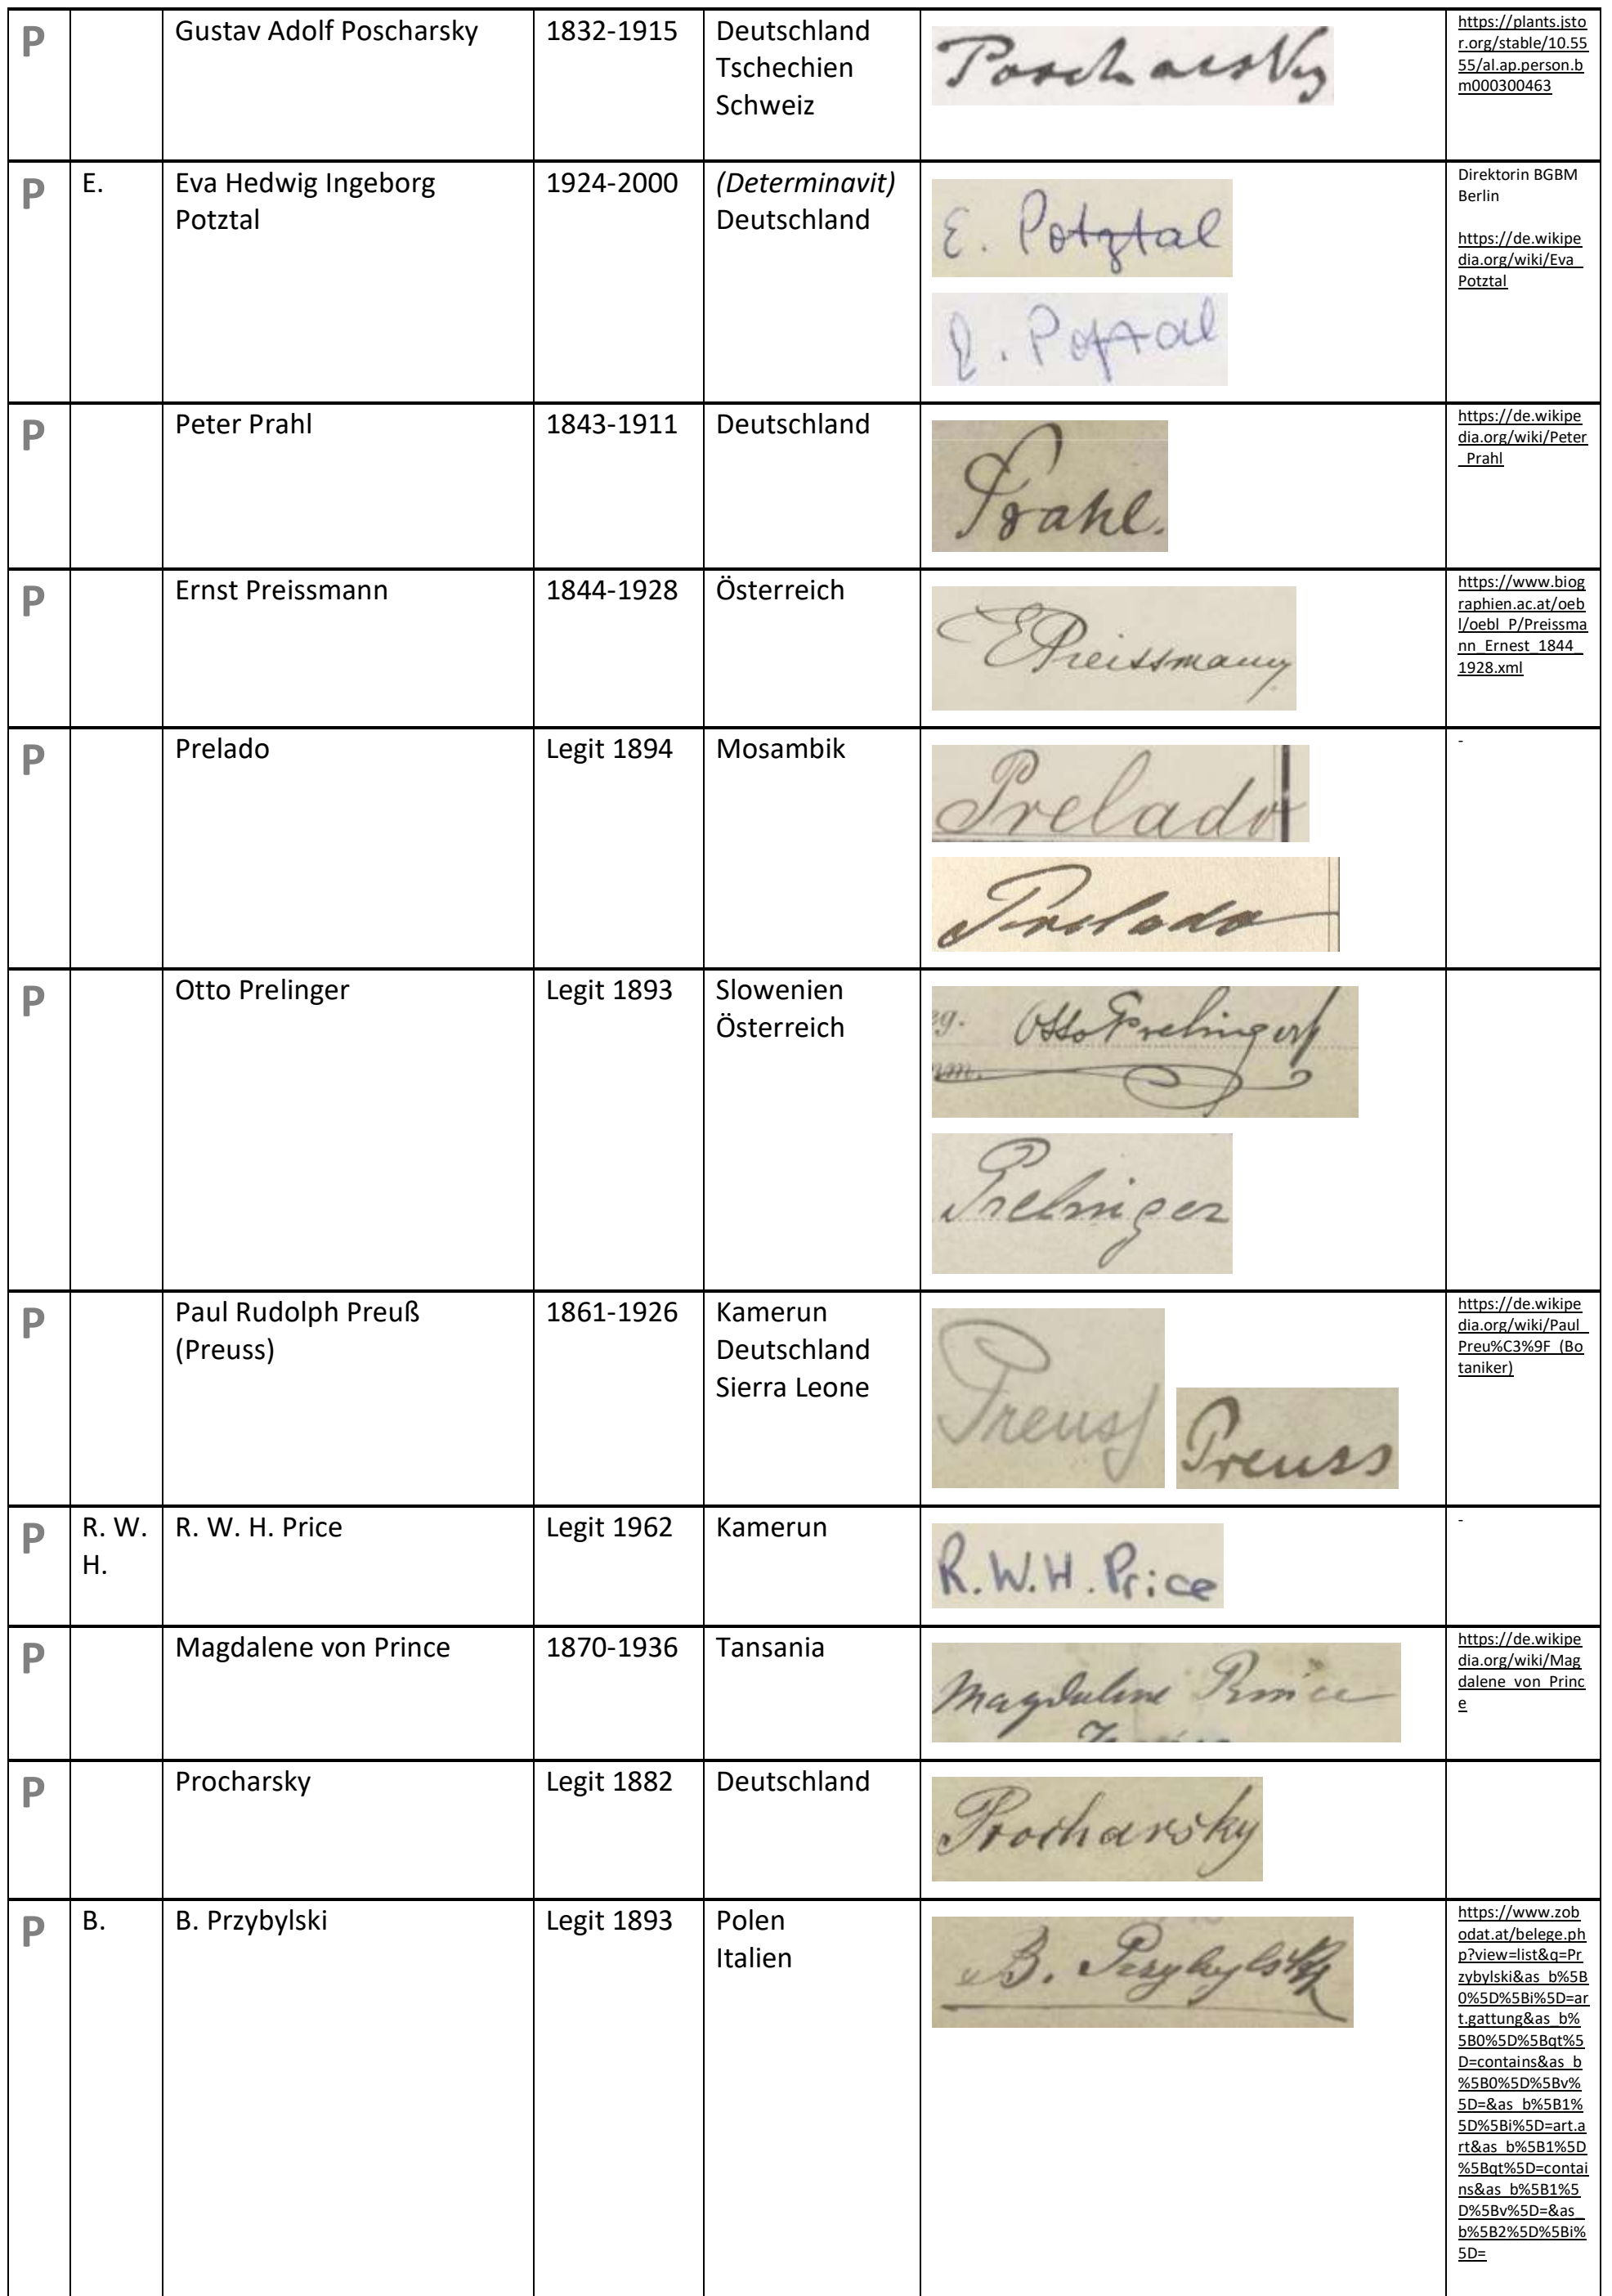 P
Gustav Adolf Poscharsky
1832-1915
Deutschland
Tschechien
Schweiz
Poscharsky
https://plants.jsto
r.org/stable/10.55
55/al.ap.person.b
m000300463
P
E.
Eva Hedwig Ingeborg
Potztal
1924-2000
(Determinavit)
Deutschland
E. Potztal
E. Potztal
Direktorin BGBM
Berlin
https://de.wikipe
dia.org/wiki/Eva_
Potztal
P
Peter Prahl
1843-1911
Deutschland
Prahl.
https://de.wikipe
dia.org/wiki/Peter
_Prahl
P
Ernst Preissmann
1844-1928
Österreich
EPreissmann
https://www.biog
raphien.ac.at/oeb
l/oebl_P/Preissma
nn_Ernest_1844_
1928.xml
P
Prelado
Legit 1894
Mosambik
Prelado
Prelado
-
P
Otto Prelinger
Legit 1893
Slowenien
Österreich
eg. Otto Prelinger
mm.
Prelinger
P
Paul Rudolph Preuß
(Preuss)
1861-1926
Kamerun
Deutschland
Sierra Leone
Preuss
Preuss
https://de.wikipe
dia.org/wiki/Paul_
Preu%C3%9F_(Bo
taniker)
P
R. W.
H.
R. W. H. Price
Legit 1962
Kamerun
R.W.H. Price
-
P
Magdalene von Prince
1870-1936
Tansania
Magdalene Prince
https://de.wikipe
dia.org/wiki/Mag
dalene_von_Princ
e
P
Procharsky
Legit 1882
Deutschland
Procharsky
P
B.
B. Przybylski
Legit 1893
Polen
Italien
B. Przybylski
https://www.zob
odat.at/belege.ph
p?view=list&q=Pr
zybylski&as_b%5B
0%5D%5Bi%5D=ar
t.gattung&as_b%
5B0%5D%5Bqt%5
D=contains&as_b
%5B0%5D%5Bv%
5D=&as_b%5B1%
5D%5Bi%5D=art.a
rt&as_b%5B1%5D
%5Bqt%5D=contai
ns&as_b%5B1%5
D%5Bv%5D=&as_
b%5B2%5D%5Bi%
5D=